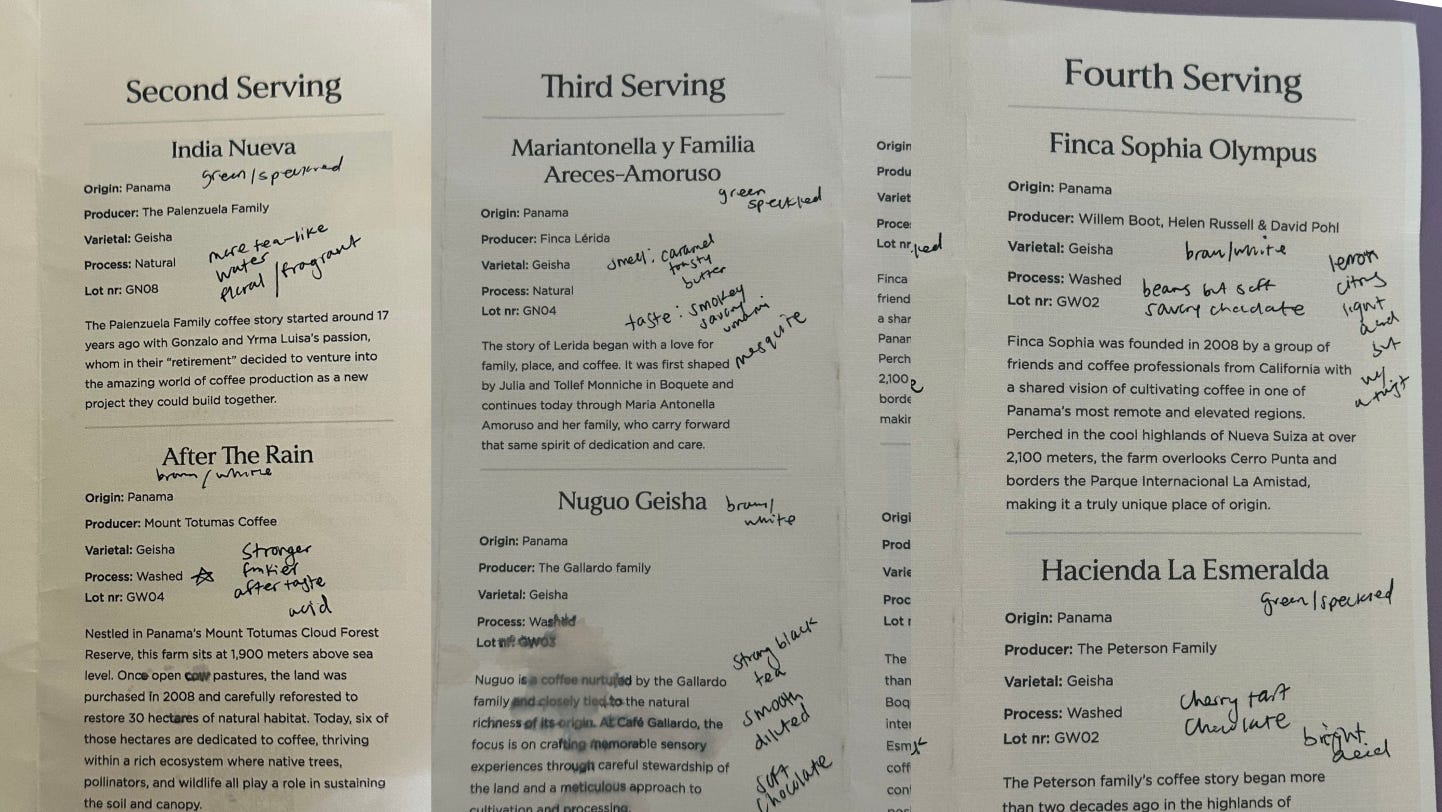 Second Serving
India Nueva
green/speckled
Origin: Panama
Producer: The Palenzuela Family
Varietal: Geisha
more tea-like
Process: Natural
water
floral/fragrant
Lot nr: GN08
The Palenzuela Family coffee story started around 17
years ago with Gonzalo and Yrma Luisa's passion,
whom in their “retirement” decided to venture into
the amazing world of coffee production as a new
project they could build together.
After The Rain
brown/white
Origin: Panama
Producer: Mount Totumas Coffee
Varietal: Geisha
Stronger
Process: Washed ☆
funkier
after taste
Lot nr: GW04
acid
Nestled in Panama's Mount Totumas Cloud Forest
Reserve, this farm sits at 1,900 meters above sea
level. Once open cow pastures, the land was
purchased in 2008 and carefully reforested to
restore 30 hectares of natural habitat. Today, six of
those hectares are dedicated to coffee, thriving
within a rich ecosystem where native trees,
pollinators, and wildlife all play a role in sustaining
the soil and canopy.
Third Serving
Mariantonella y Familia
Areces-Amoruso
green
speckled
Origin: Panama
Producer: Finca Lérida
Varietal: Geisha
smell: caramel
toasty
butter
Process: Natural
Lot nr: GN04
taste: smokey
savory
umami
mesquite
The story of Lerida began with a love for
family, place, and coffee. It was first shaped
by Julia and Tollef Monniche in Boquete and
continues today through Maria Antonella
Amoruso and her family, who carry forward
that same spirit of dedication and care.
Nuguo Geisha
brown/
white
Origin: Panama
Producer: The Gallardo family
Varietal: Geisha
Process: Washed
Lot nr: GW03
strong black
tea
smooth
diluted
soft
chocolate
Nuguo is a coffee nurtured by the Gallardo
family and closely tied to the natural
richness of its origin. At Café Gallardo, the
focus is on crafting memorable sensory
experiences through careful stewardship of
the land and a meticulous approach to
cultivation and processing.
Origin
Produ
Variet
Proce
Lot nr
Finca
friend
a shar
Panar
Perch
2,100
borde
makin
Origi
Prod
Varie
Proc
Lot
The
than
Boq
inter
Esm
coff
con
Fourth Serving
Finca Sophia Olympus
Origin: Panama
Producer: Willem Boot, Helen Russell & David Pohl
Varietal: Geisha
brown/white
Process: Washed
beans but soft
Lot nr: GW02
savory chocolate
lemon
citrus
light
acid
but
w/
a twist
Finca Sophia was founded in 2008 by a group of
friends and coffee professionals from California with
a shared vision of cultivating coffee in one of
Panama's most remote and elevated regions.
Perched in the cool highlands of Nueva Suiza at over
2,100 meters, the farm overlooks Cerro Punta and
borders the Parque Internacional La Amistad,
making it a truly unique place of origin.
Hacienda La Esmeralda
green/speckled
Origin: Panama
Producer: The Peterson Family
Varietal: Geisha
cherry tart
Process: Washed
chocolate
Lot nr: GW02
bright
acid
The Peterson family's coffee story began more
than two decades ago in the highlands of